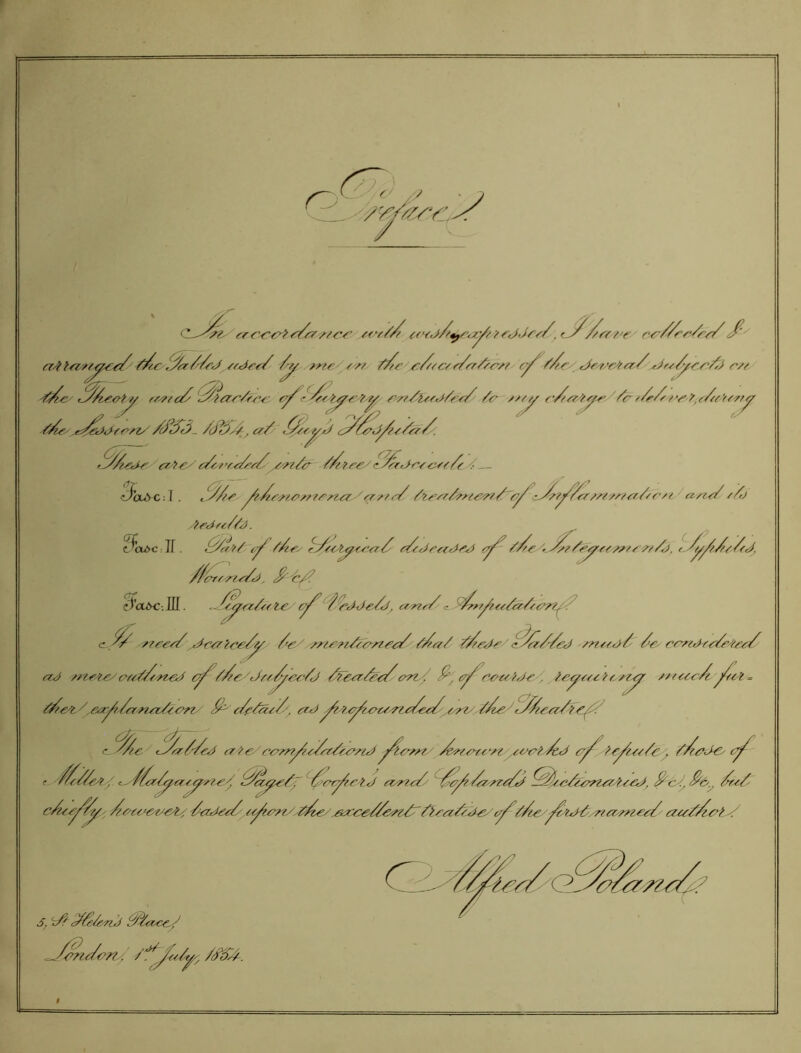 Preface.
In accordance with wishes expressed, I have collected &
arranged the Tables used by me in the elucidation of the several subjects on
the Theory and Practice of Surgery entrusted to my charge to deliver, during
the Session 1853-1854, at Guy's Hospital.
These are divided into three Fasciculi:—
Fasc: I. The phenomena and treatment of Inflammation and its
results.
Fasc: II. Part of the Surgical diseases of the Integuments, Syphilis,
Wounds, &c.
Fasc: III. Ligature of Vessels, and Amputation.
It need scarcely be mentioned that these Tables must be considered
as mere outlines of the subjects treated on, &, of course, requiring much fur=
ther explanation & detail, as propounded in the Theatre.
The Tables are compilations from known works of repute, those of
Miller, Malgaigne, Paget, Cooper's and Copland's Dictionaries, &c., &c., but
chiefly, however, based upon the excellent treatise of the first named author.
Alfred Poland.
5, St Helens Place,
London, 1st July, 1854.